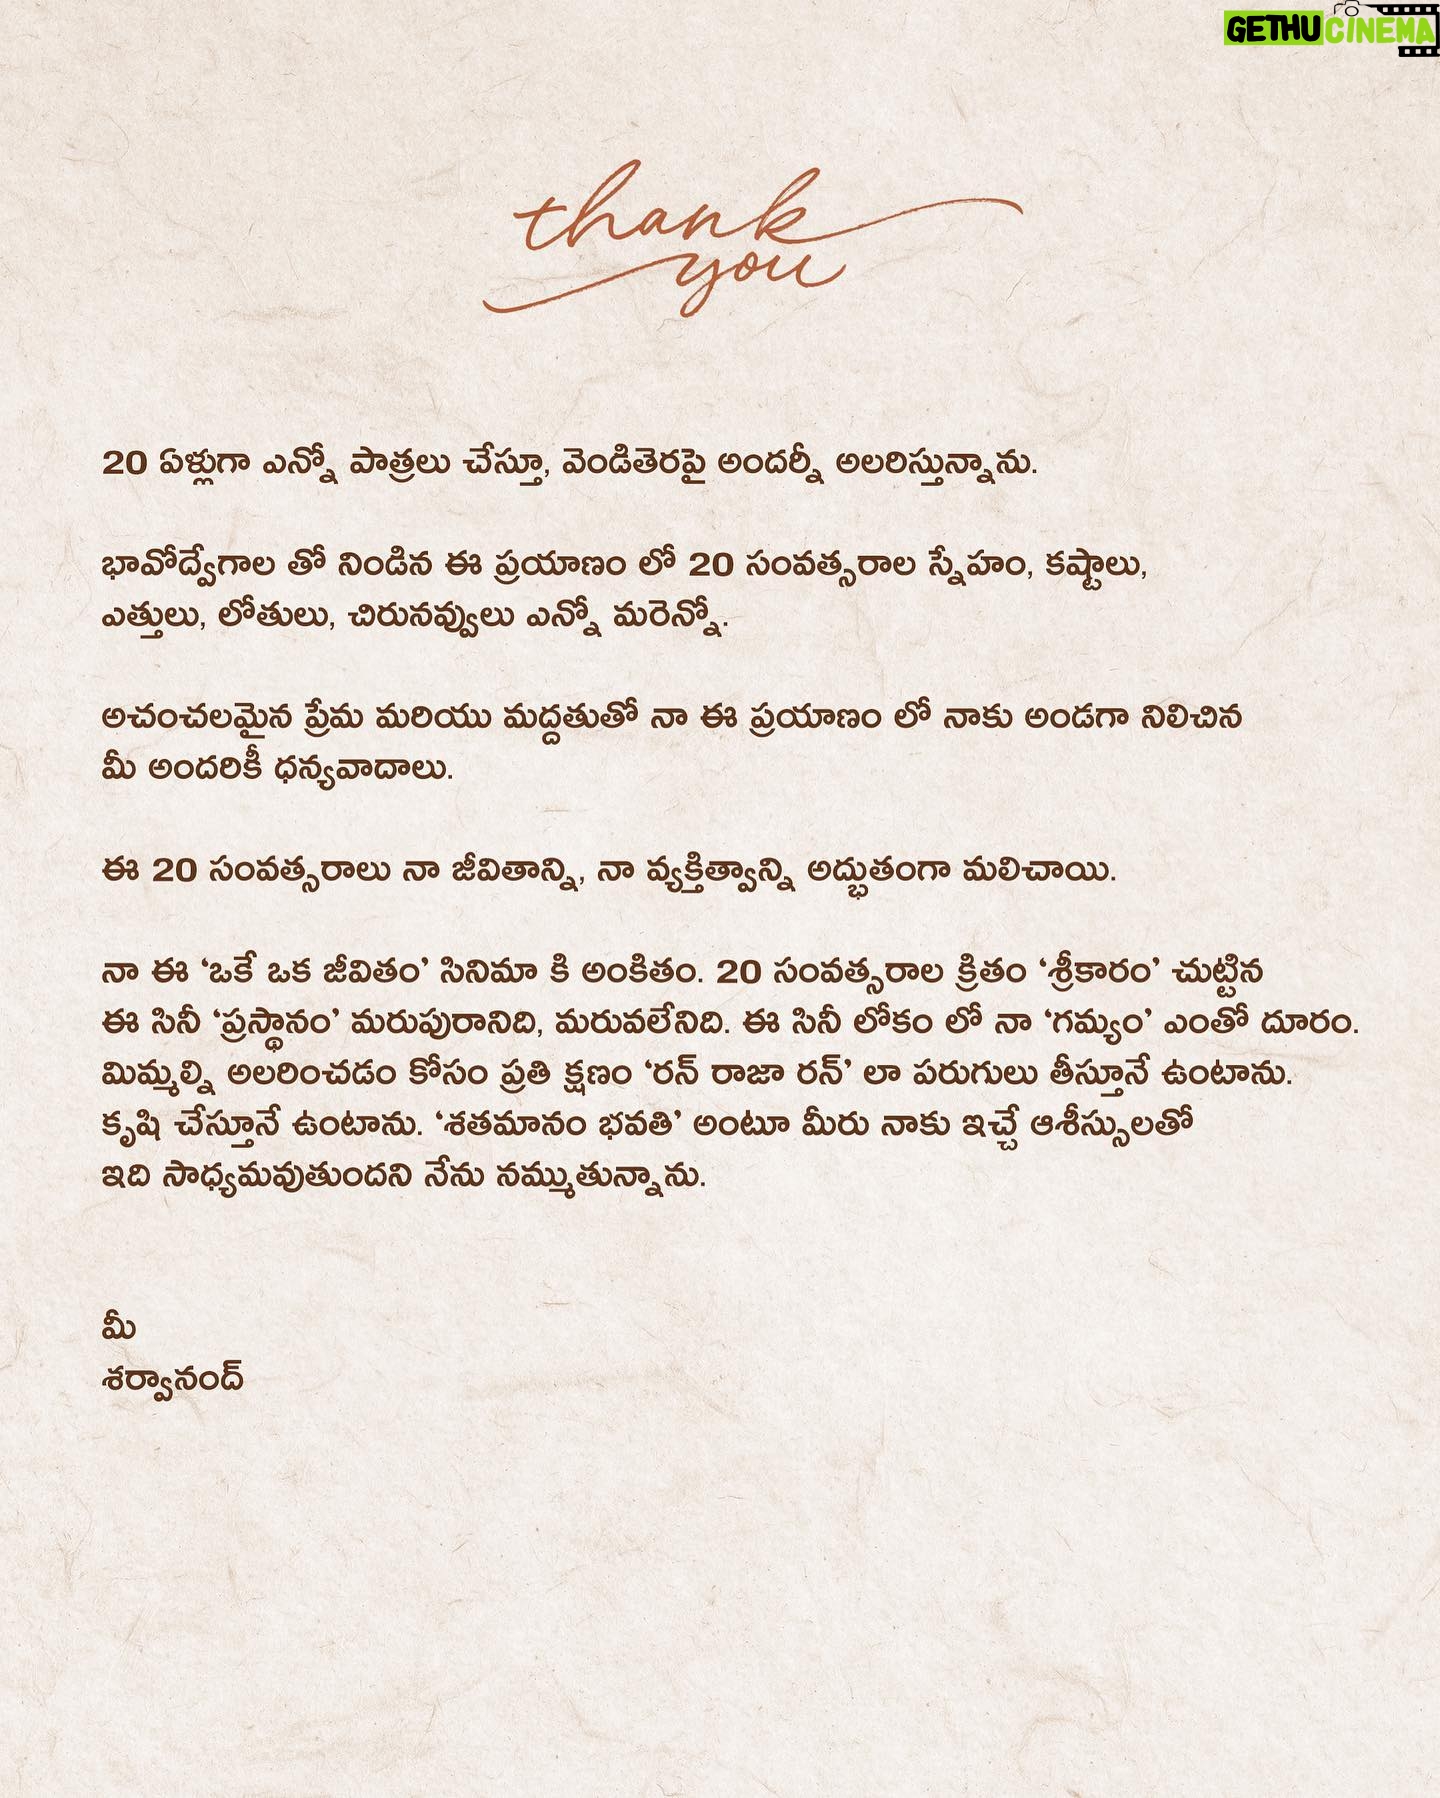 GETHU CINEMA
thank
you
20 ఏళ్లుగా ఎన్నో పాత్రలు చేస్తూ, వెండితెరపై అందర్నీ అలరిస్తున్నాను.
భావోద్వేగాల తో నిండిన ఈ ప్రయాణం లో 20 సంవత్సరాల స్నేహం, కష్టాలు,
ఎత్తులు, లోతులు, చిరునవ్వులు ఎన్నో మరెన్నో.
అచంచలమైన ప్రేమ మరియు మద్దతుతో నా ఈ ప్రయాణం లో నాకు అండగా నిలిచిన
మీ అందరికీ ధన్యవాదాలు.
ఈ 20 సంవత్సరాలు నా జీవితాన్ని, నా వ్యక్తిత్వాన్ని అద్భుతంగా మలిచాయి.
నా ఈ ‘ఒకే ఒక జీవితం’ సినిమా కి అంకితం. 20 సంవత్సరాల క్రితం ‘శ్రీకారం’ చుట్టిన
ఈ సినీ ‘ప్రస్థానం’ మరుపురానిది, మరువలేనిది. ఈ సినీ లోకం లో నా ‘గమ్యం’ ఎంతో దూరం.
మిమ్మల్ని అలరించడం కోసం ప్రతి క్షణం ‘రన్ రాజా రన్’ లా పరుగులు తీస్తూనే ఉంటాను.
కృషి చేస్తూనే ఉంటాను. ‘శతమానం భవతి’ అంటూ మీరు నాకు ఇచ్చే ఆశీస్సులతో
ఇది సాధ్యమవుతుందని నేను నమ్ముతున్నాను.
మీ
శర్వానంద్